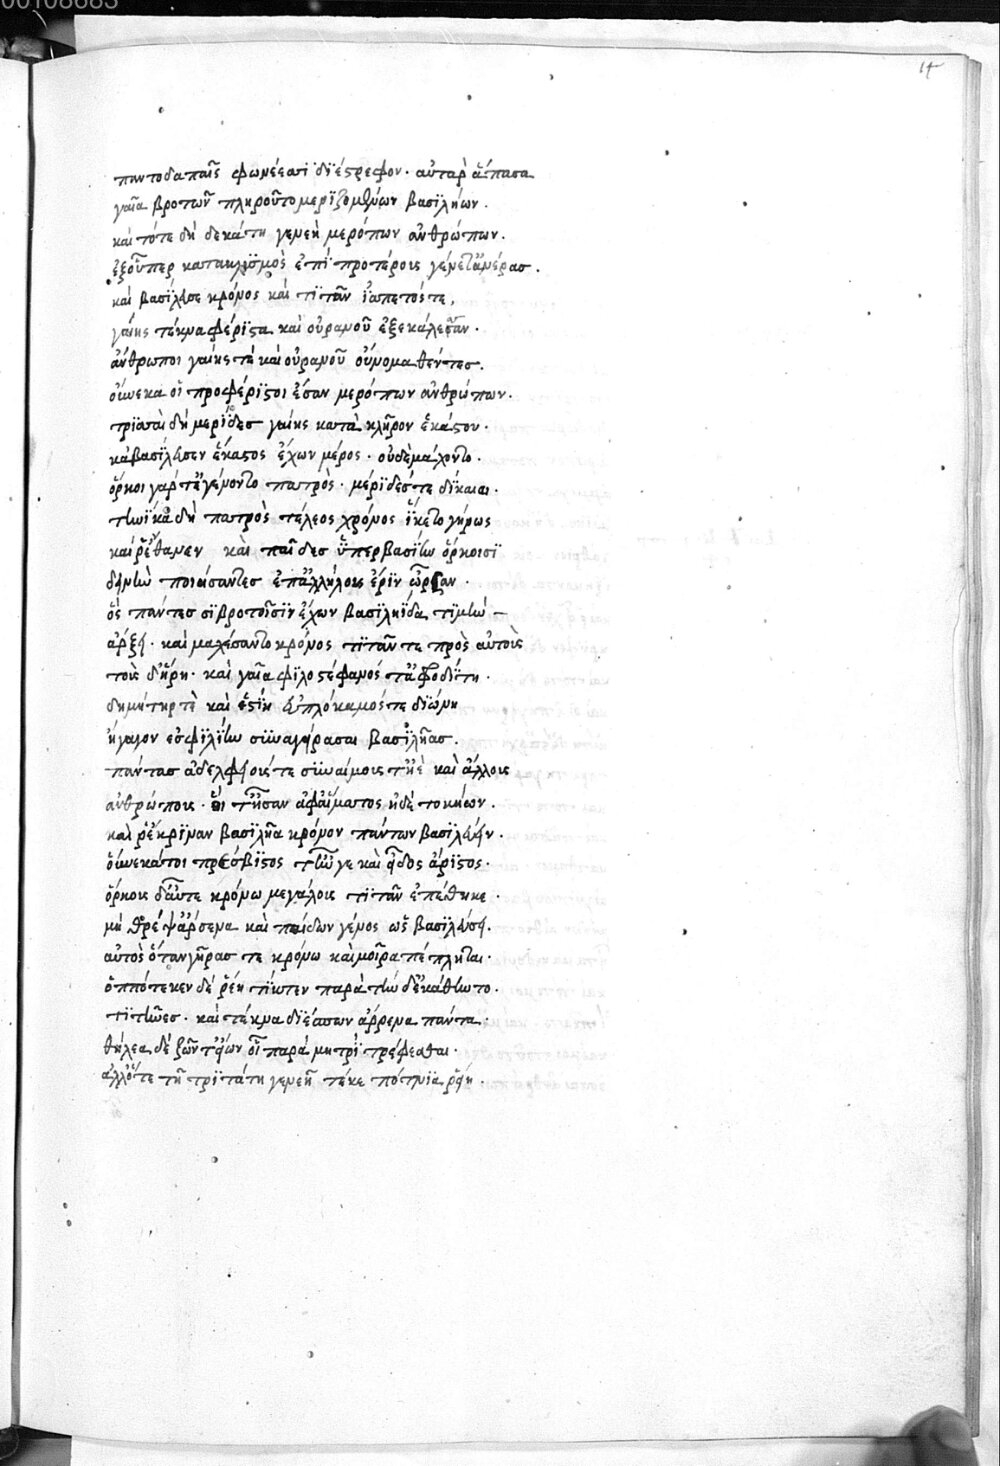 00108683
14
παντοδαπαῖς φωνέεσσϊ δϊέστρεφον· αὐτὰρ ἅπασα
γαῖα βροτῶν πληροῦτο μερϊζομένων βασϊλήων.
καὶ τότε δὴ δεκάτη γενεὴ μερόπων ἀνθρώπων.
ἐξοῦπερ κατακλϋσμὸς ἐπὶ προτέρους γένετἄνδρασ.
καὶ βασΐλευσε κρόνος καὶ τϊτὰν ἰαπετόστε,
γαίης τέκνα φέρϊστα καὶ οὐρανοῦ ἐξεκάλεσσαν.
ἄνθρωποι γαίης τὲ καὶ οὐρανοῦ οὔνομα θέντεσ.
οὕνεκα οἱ προφέρϊστοι ἔσαν μερόπων ἀνθρώπων.
τρϊσσαὶ δὴ μερΐδεσ γαίης κατὰ κλῆρον ἑκάστου.
κἀβασΐλευσεν ἕκαστος ἔχων μέρος. οὐδὲμάχοντο.
ὅρκοι γάρ τἐγένοντο πατρὸς. μέρϊδέστε δίκαιαι.
τηνΐκα δὴ πατρὸς τέλεος χρόνος ἵκετο γήρως
καί ῥἔθανεν καὶ παῖδεσ ὑπερβασίην ὅρκοισϊ
δεινὴν ποιήσαντεσ ἐπἀλλήλους ἔρϊν ὦρσαν.
ὃς πάντεσσϊ βροτοῖσϊν ἔχων βασϊληΐδα τϊμὴν
ἄρξει. καὶ μαχέσαντο κρόνος τϊτάν τε πρὸς αὐτούς
τοὺς δἥρη. καὶ γαῖα φϊλοστέφανός τἀφροδΐτη.
δημήτηρ τὲ καὶ ἑστΐη εὐπλόκαμός τε δϊώνη
ἤγαγον ἐσ φϊλΐην συναγείρασαι βασϊλῆασ.
πάντασ ἀδελφειούς τε συναίμους τἠὲ καὶ ἄλλους
ἀνθρώπους. οἵ τἦσαν ἀφαἵματος ἠδὲ τοκήων.
καὶ ῥἔκρϊναν βασϊλῆα κρόνον πάντων βασϊλεύειν.
οὕνεκάτοι πρέσβϊστος τἔην γε καὶ εἶδος ἄρϊστος.
ὅρκους δαὖτε κρόνω μεγάλους τϊτὰν ἐπέθηκε.
μὴ θρέψἄρσενα καὶ παίδων γένος ὡς βασϊλεύσει.
αὐτὸς ὅταν γῆρασ τε κρόνω καὶ μοῖρα πέπληται.
ὁππότε κεν δὲ ῥέη τίκτεν παρὰ τήν δἐκάθηντο.
τϊτῆνεσ. καὶ τέκνα δϊέσπων ἄρρενα πάντα.
θήλεα δὲ ζῶντεἴων οἷ παρὰ μητρΐ τρέφεσθαι.
ἀλλὅτε τῆ τρϊτάτη γενεῆ τέκε πότνϊα ῥείη.